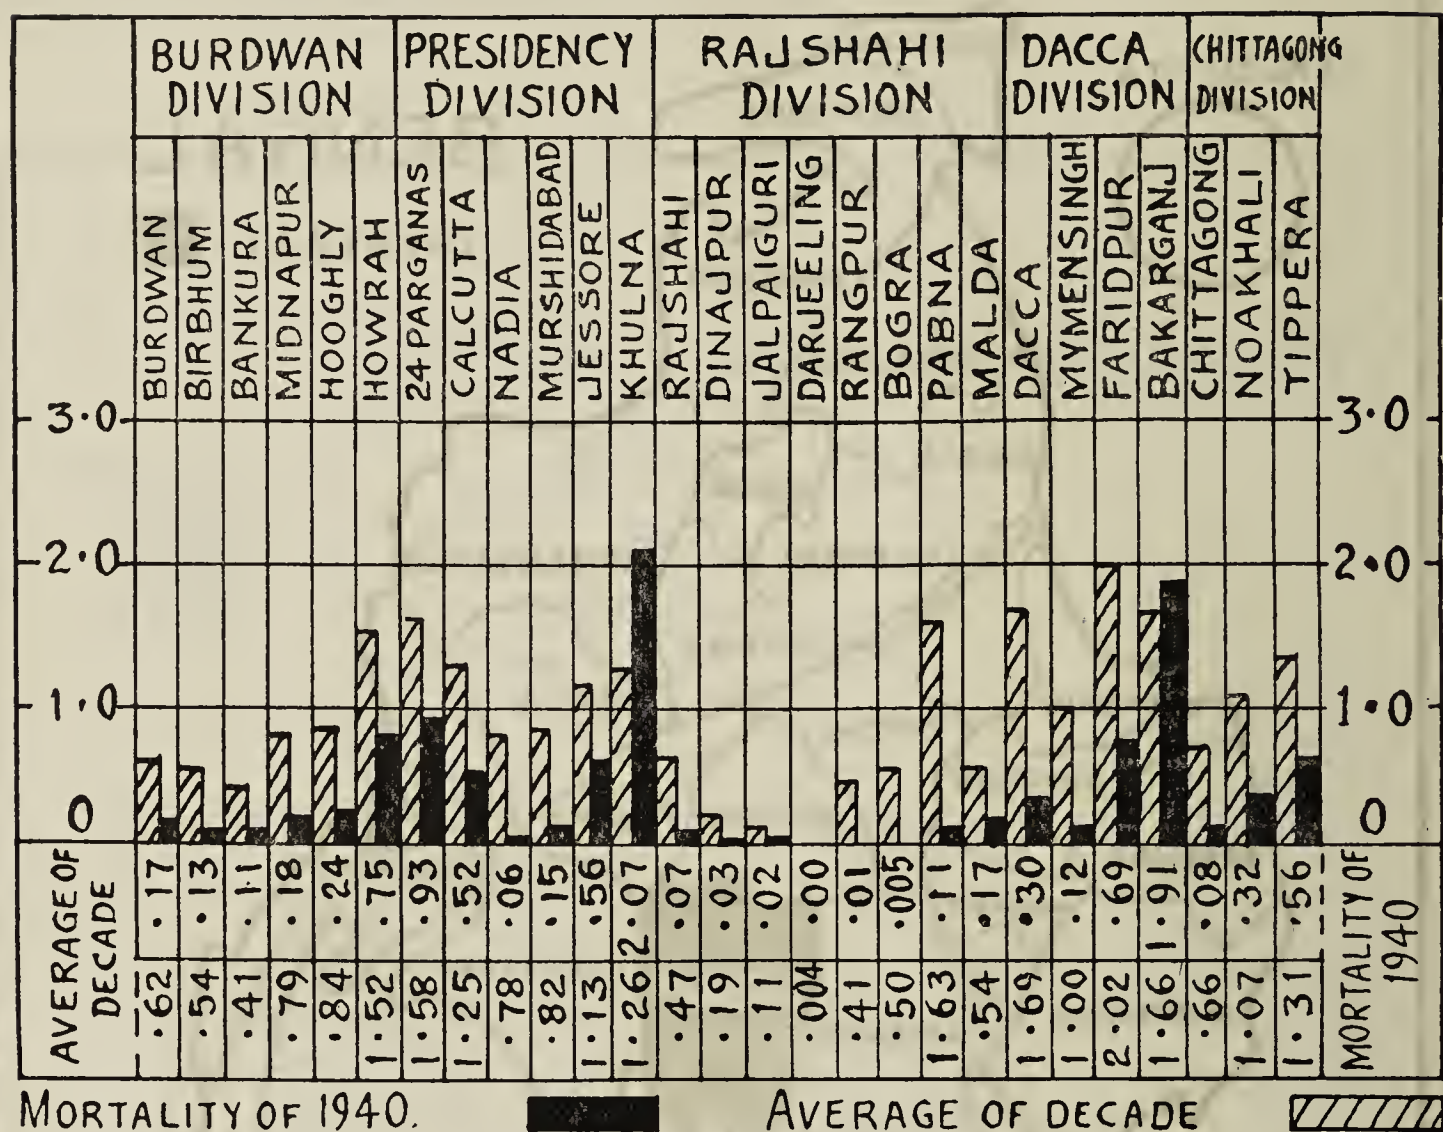 BURDWAN DIVISION
PRESIDENCY DIVISION
RAJSHAHI DIVISION
DACCA DIVISION
CHITTAGONG DIVISION
BURDWAN
BIRBHUM
BANKURA
MIDNAPUR
HOOGHLY
HOWRAH
24-PARGANAS
CALCUTTA
NADIA
MURSHIDABAD
JESSORE
KHULNA
RAJSHAHI
DINAJPUR
JALPAIGURI
DARJEELING
RANGPUR
BOGRA
PABNA
MALDA
DACCA
MYMENSINGH
FARIDPUR
BAKARGANJ
CHITTAGONG
NOAKHALI
TIPPERA
3·0 3·0
2·0 2·0
1·0 1·0
0 0
AVERAGE OF
DECADE
·17 ·13 ·11 ·18 ·24 ·75 ·93 ·52 ·06 ·15 ·56 2·07 ·07 ·03 ·02 ·00 ·01 ·005 ·11 ·17 ·30 ·12 ·69 1·91 ·08 ·32 ·56
·62 ·54 ·41 ·79 ·84 1·52 1·58 1·25 ·78 ·82 1·13 1·26 ·47 ·19 ·11 ·004 ·41 ·50 1·63 ·54 1·69 1·00 2·02 1·66 ·66 1·07 1·31
MORTALITY OF
1940
MORTALITY OF 1940. AVERAGE OF DECADE